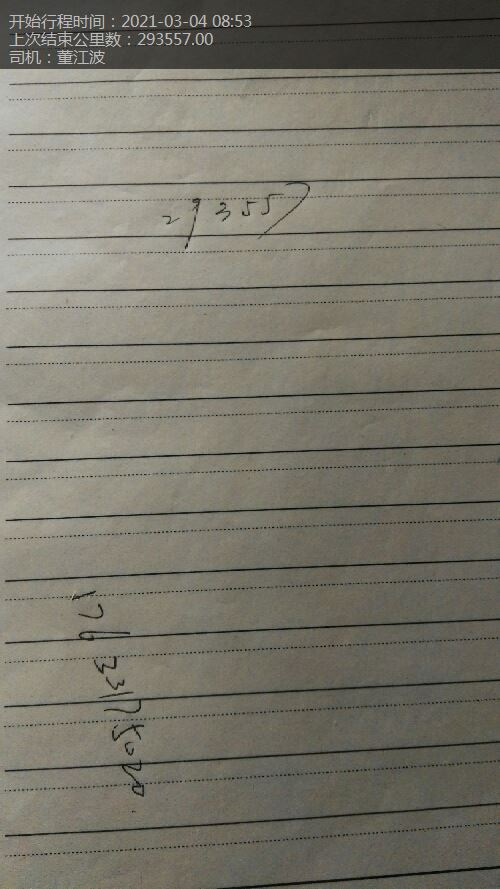 开始行程时间：2021-03-04 08:53
上次结束公里数：293557.00
司机：董江波
293557